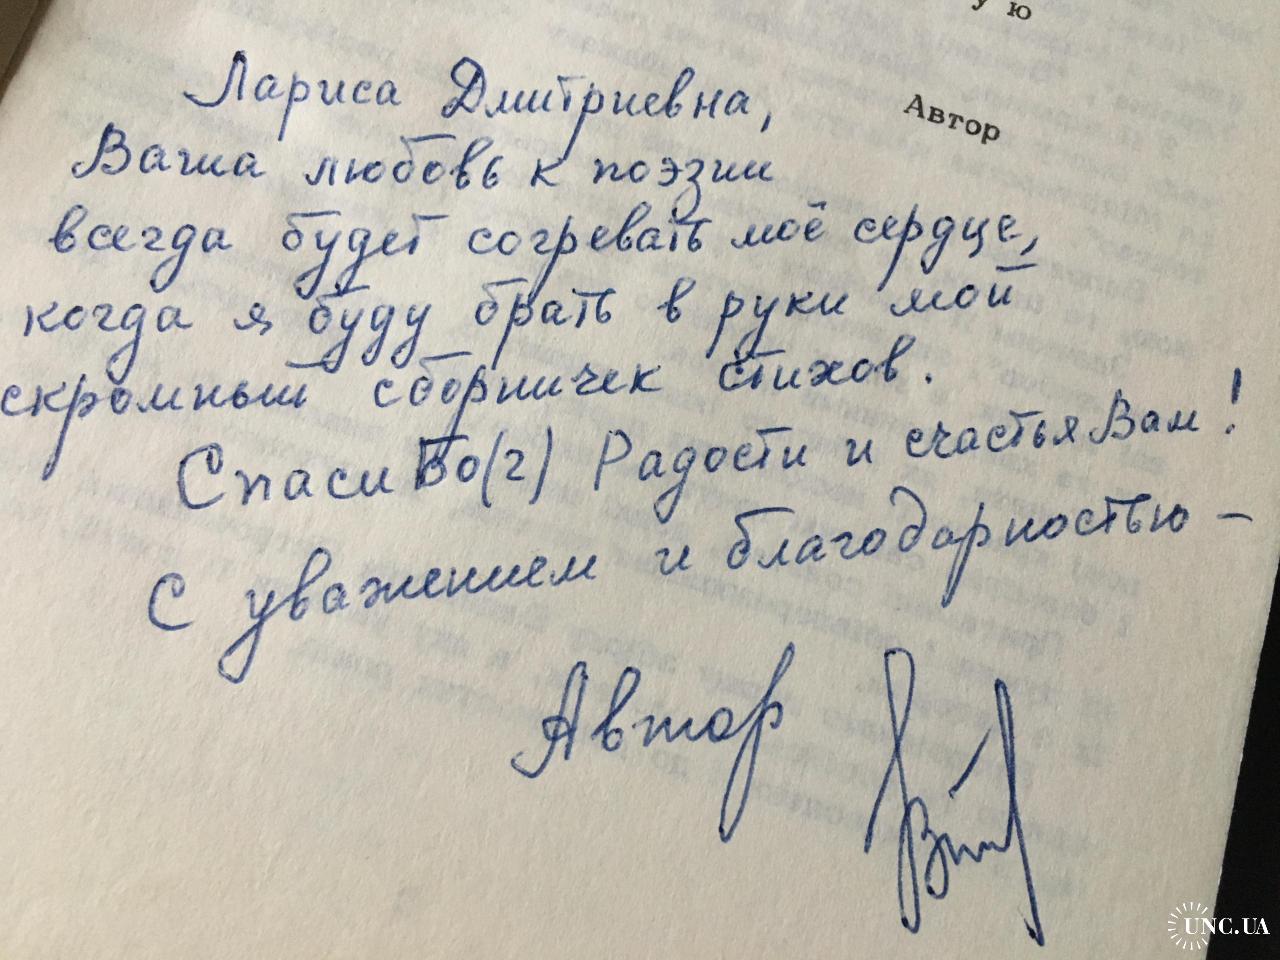 у ю
Автор
Лариса Дмитриевна,
Ваша любовь к поэзии
всегда будет согревать моё сердце,
когда я буду брать в руки мой
скромный сборничек стихов.
Спаси Бо(г) Радости и счастья Вам!
С уважением и благодарностью –
Автор
UNC.UA